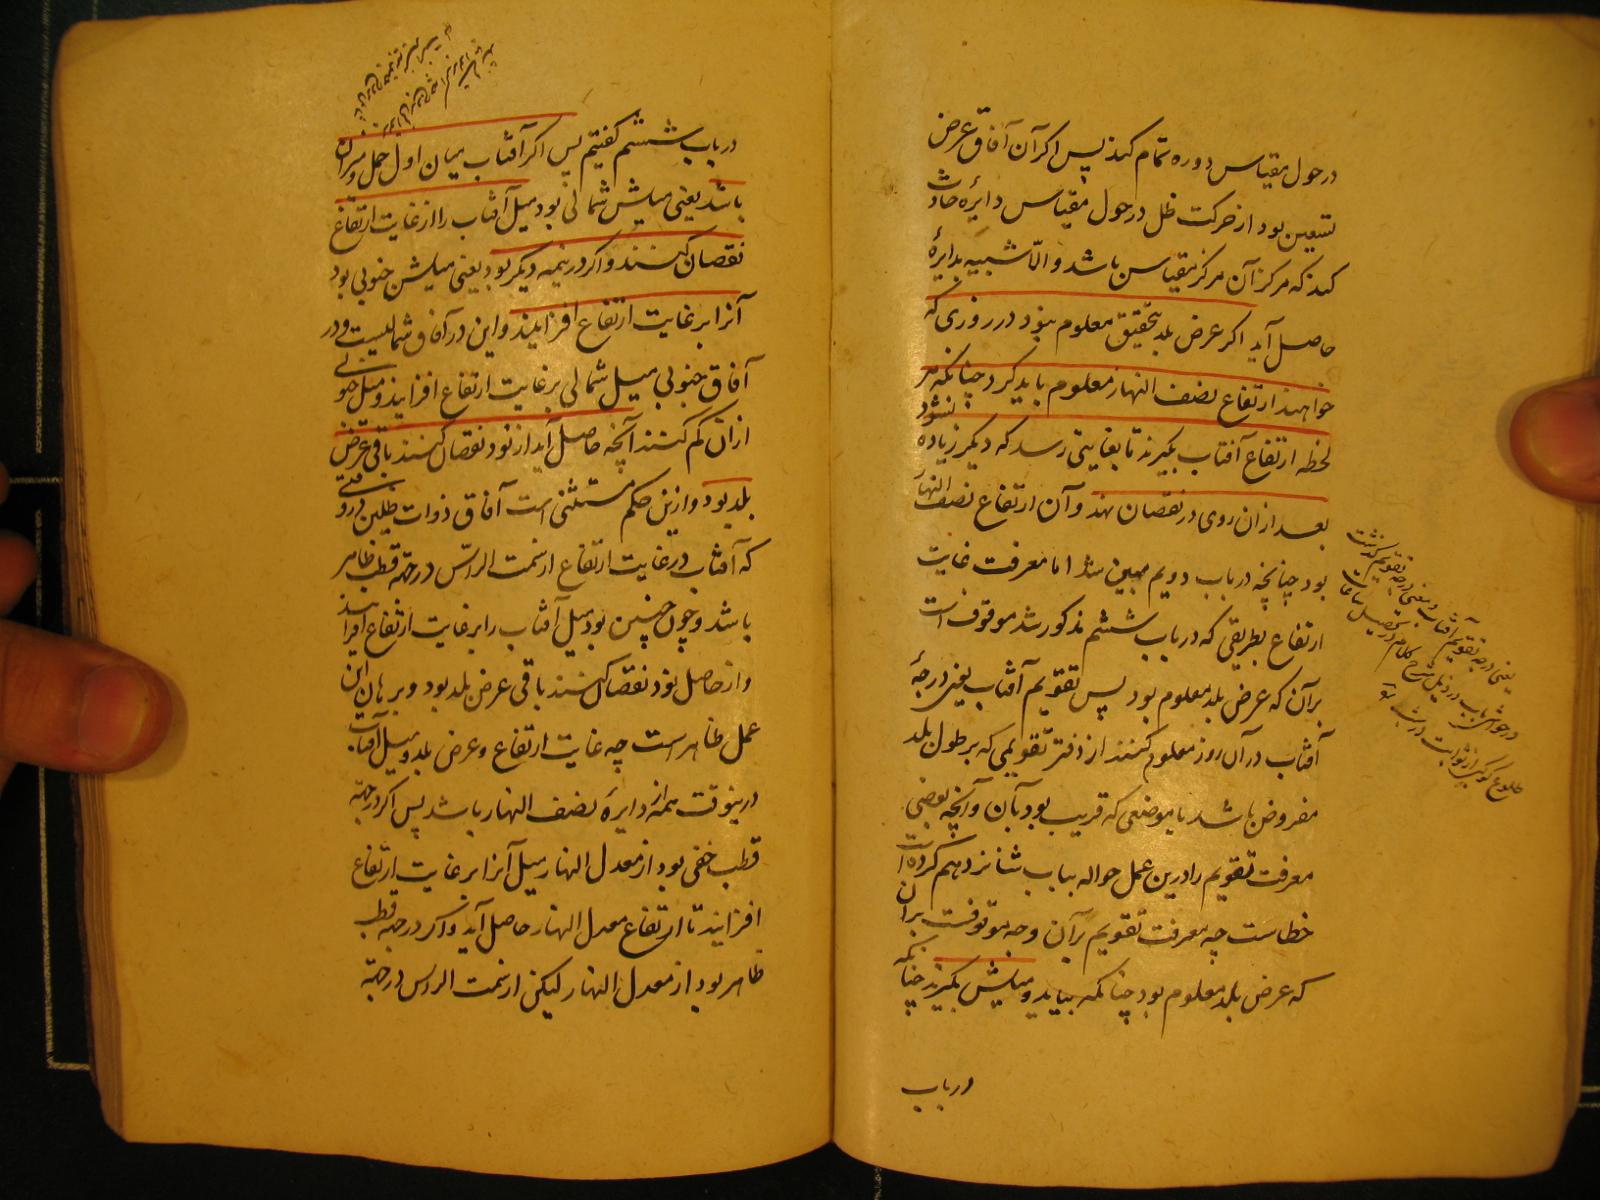 در حول مقیاس دوره تمام کند پس اکر آن آفاق عرض
تسعین بود از حرکت ظل در حول مقیاس دایرهٔ حادث
کند که مرکز آن مرکز مقیاس باشد والّا شبیه بدایرهٔ
حاصل آید اکر عرض بلد بتحقیق معلوم نبود در روزی که
خواهند ارتفاع نصف النهار معلوم باید کرد چنانکه هر
لحظه ارتفاع آفتاب بکیرند تا بغایتی رسد که دیکر زیاده نشود
بعد ازان روی در نقصان نهد و آن ارتفاع نصف النهار
بود چنانچه در باب دویم مبین شد اما معرفت غایت
ارتفاع بطریقی که در باب ششم مذکور شد موقوف است
بر آن که عرض بلد معلوم بود پس تقویم آفتاب یعنی درجهٔ
آفتاب در آن روز معلوم کنند از دفتر تقویمی که بر طول بلد
مفروض باشد یا موضعی که قریب بود بآن و آنچه بعضی
معرفت تقویم را درین عمل حواله بباب شانزدهم کرده است
خطاست چه معرفت تقویم بر آن وجه موقوفست بر آن
که عرض بلد معلوم بود چنانکه بیاید و میلش بکیرند چنانکه
در باب
یعنی درجه تقویم آفتاب
در باب ششم کفتیم پس اکر آفتاب میان اول حمل و میزان
باشد یعنی میلش شمالی بود میل آفتاب را از غایت ارتفاع
نقصان کنند و اکر در نیمه دیکر بود یعنی میلش جنوبی بود
آنرا بر غایت ارتفاع افزایند و این در آفاق شمالیست و در
آفاق جنوبی میل شمالی بر غایت ارتفاع افزایند و میل جنوبی
ازان کم کنند آنچه حاصل آید از نود نقصان کنند باقی عرض
بلد بود و ازین حکم مستثنی است آفاق ذوات ظلین در وقتی
که آفتاب در غایت ارتفاع از سمت الراس در جهة قطب ظاهر
باشد و چون چنین بود میل آفتاب را بر غایت ارتفاع افزایند
و از حاصل نود نقصان کنند باقی عرض بلد بود و برهان این
عمل ظاهرست چه غایت ارتفاع و عرض بلد و میل آفتاب
درینوقت همه از دایرهٔ نصف النهار باشد پس اکر در جهة
قطب خفی بود از معدل النهار میل آنرا بر غایت ارتفاع
افزایند تا ارتفاع معدل النهار حاصل آید و اکر در جهة قطب
ظاهر بود از معدل النهار لیکن از سمت الراس در جهة